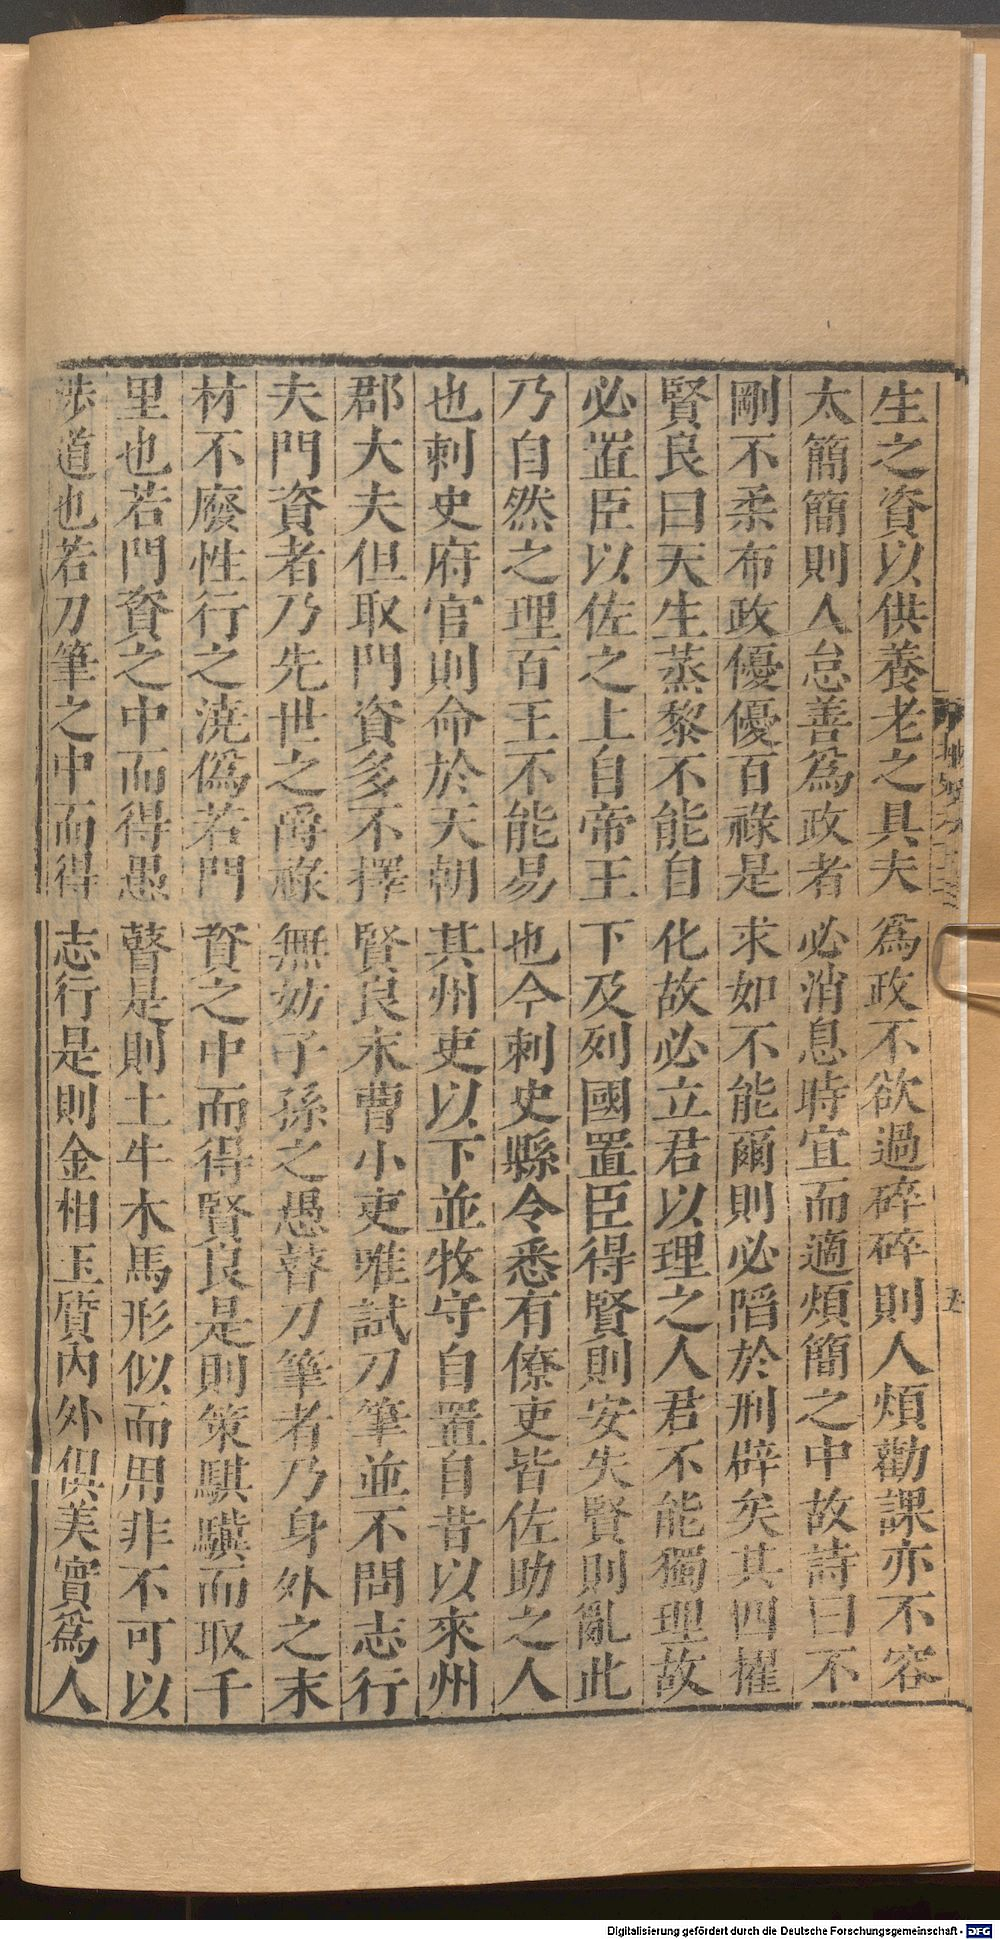 生之資以供養老之具夫爲政不欲過碎碎則人煩勸課亦不容
太簡簡則人怠善爲政者必消息時宜而適煩簡之中故詩曰不
剛不柔布政優優百祿是求如不能爾則必陷於刑辟矣其四擢
賢良曰天生蒸黎不能自化故必立君以理之人君不能獨理故
必置臣以佐之上自帝王下及列國置臣得賢則安失賢則亂此
乃自然之理百王不能易也今刺史縣令悉有僚吏皆佐助之人
也刺史府官則命於天朝其州吏以下並牧守自置自昔以來州
郡大夫但取門資多不擇賢良末曹小吏唯試刀筆並不問志行
夫門資者乃先世之爵祿無妨子孫之愚瞽刀筆者乃身外之末
材不廢性行之澆僞若門資之中而得賢良是則策騏驥而取千
里也若門資之中而得愚瞽是則土牛木馬形似而用非不可以
涉道也若刀筆之中而得志行是則金相玉質內外俱美實爲人
五
Digitalisierung gefördert durch die Deutsche Forschungsgemeinschaft - DFG